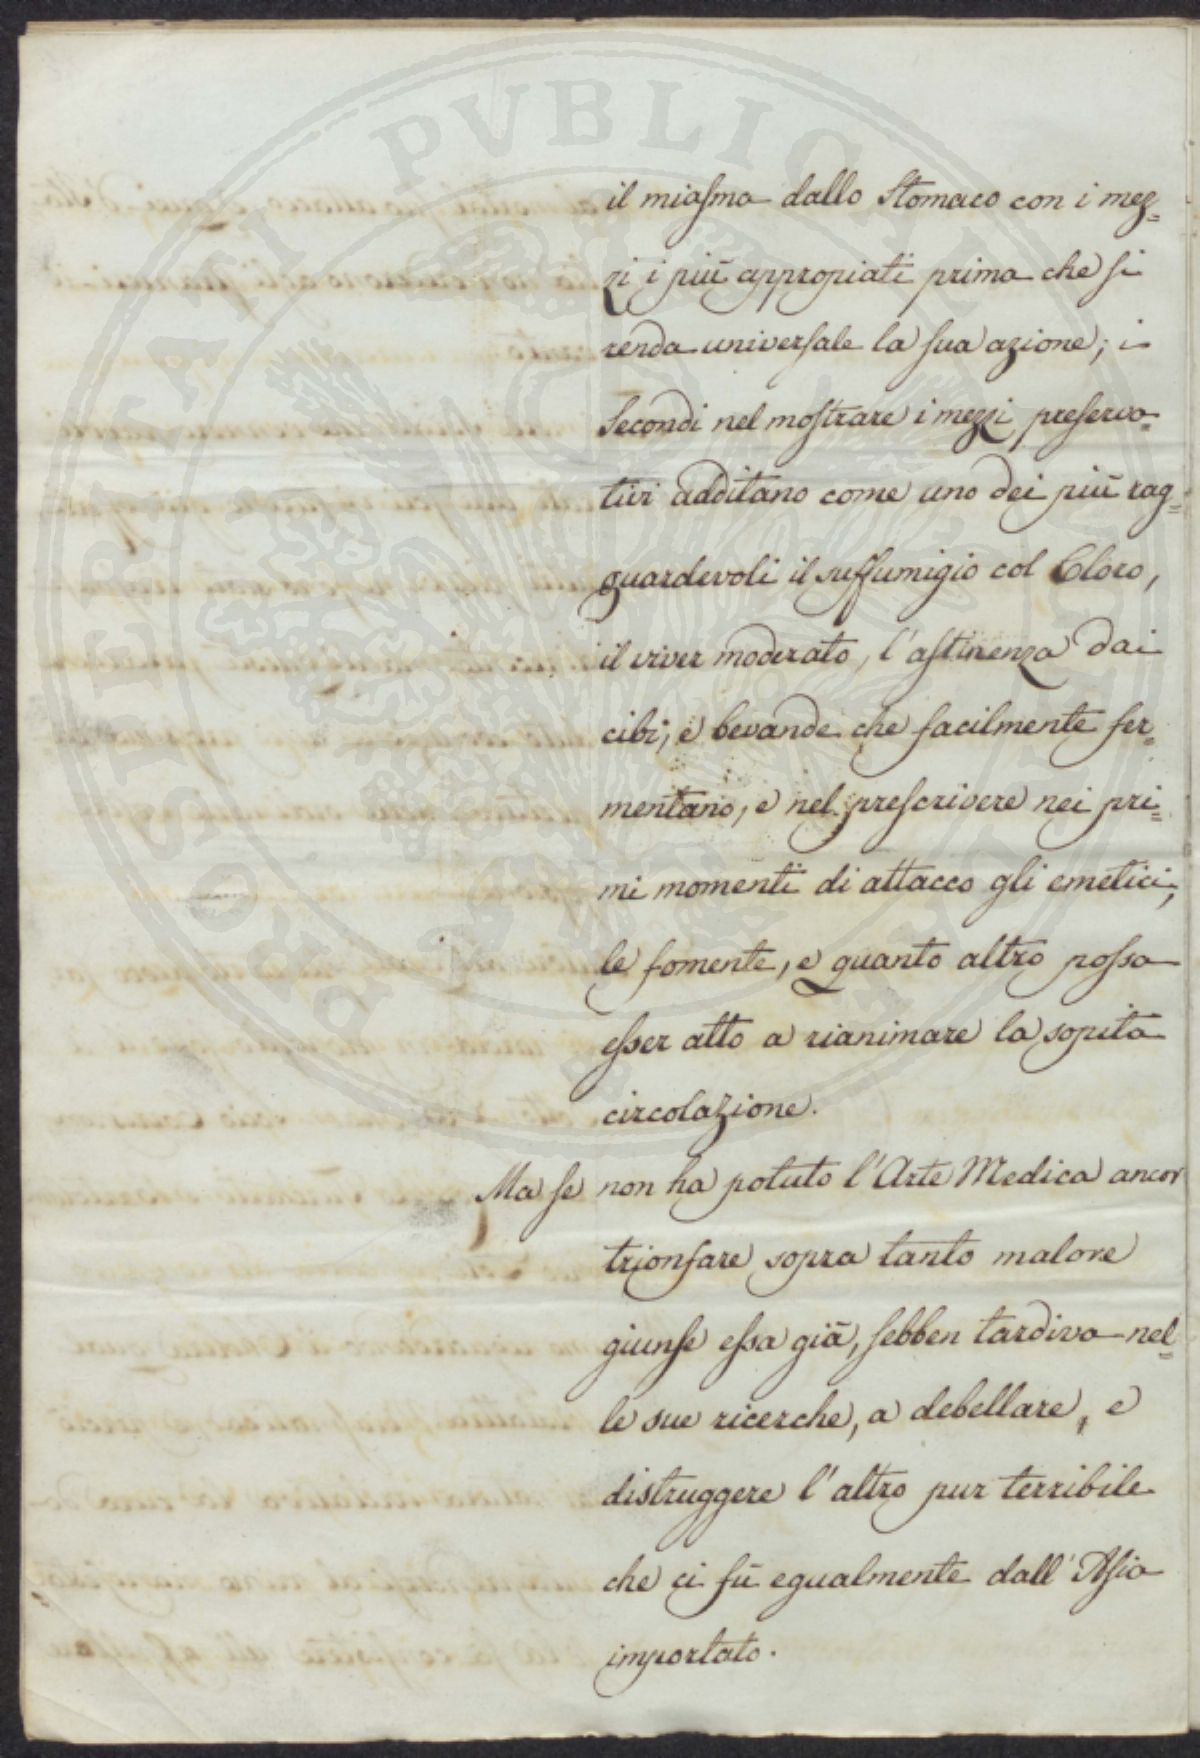 PROSPERITATI PVBLICAE
il miasma dallo Stomaco con i mez=
zi i più appropiati prima che si
renda universale la sua azione; i
Secondi nel mostrare i mezzi preserva=
tivi additano come uno dei più rag=
guardevoli il suffumigio col Cloro,
il viver moderato, l'astinenza dai
cibi, e bevande che facilmente fer=
mentano, e nel prescrivere nei pri=
mi momenti di attacco gli emetici,
le fomente, e quanto altro possa
esser atto a rianimare la sopita
circolazione.
Ma se non ha potuto l'Arte Medica ancor
trionfare sopra tanto malore
giunse essa già, sebben tardiva nel=
le sue ricerche, a debellare, e
distruggere l'altro pur terribile
che ci fù egualmente dall'Asia
importato.